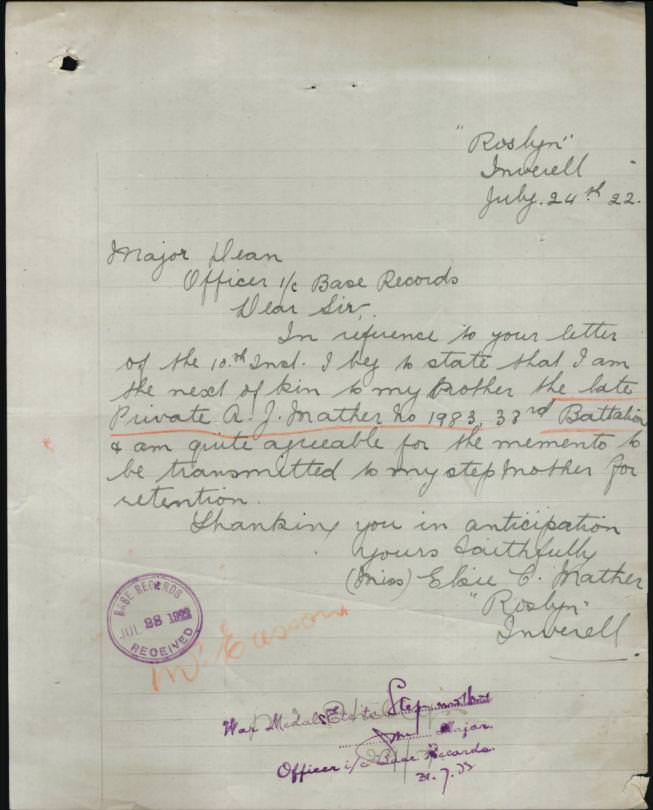 "Roslyn"
Inverell
July. 24th 22.
Major Dean
Officer i/c Base Records
Dear Sir,
In reference to your letter
of the 10th Inst. I beg to state that I am
the next of kin to my brother the late
Private A. J. Mather No 1983, 33rd Battalion
& am quite agreeable for the memento to
be transmitted to my stepmother for
retention.
Thanking you in anticipation
Yours faithfully
(Miss) Elsie C. Mather
"Roslyn"
Inverell.
BASE RECORDS
JUL 28 1922
RECEIVED
War Medals Etc to Stepmother
Major.
Officer i/c Base Records.